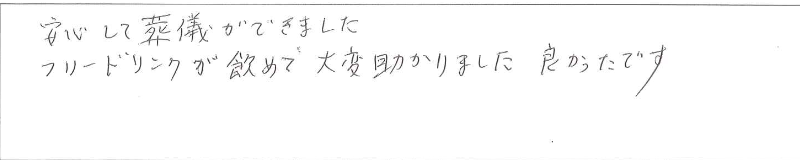 安心して葬儀ができました
フリードリンクが飲めで大変助かりました 良かったです